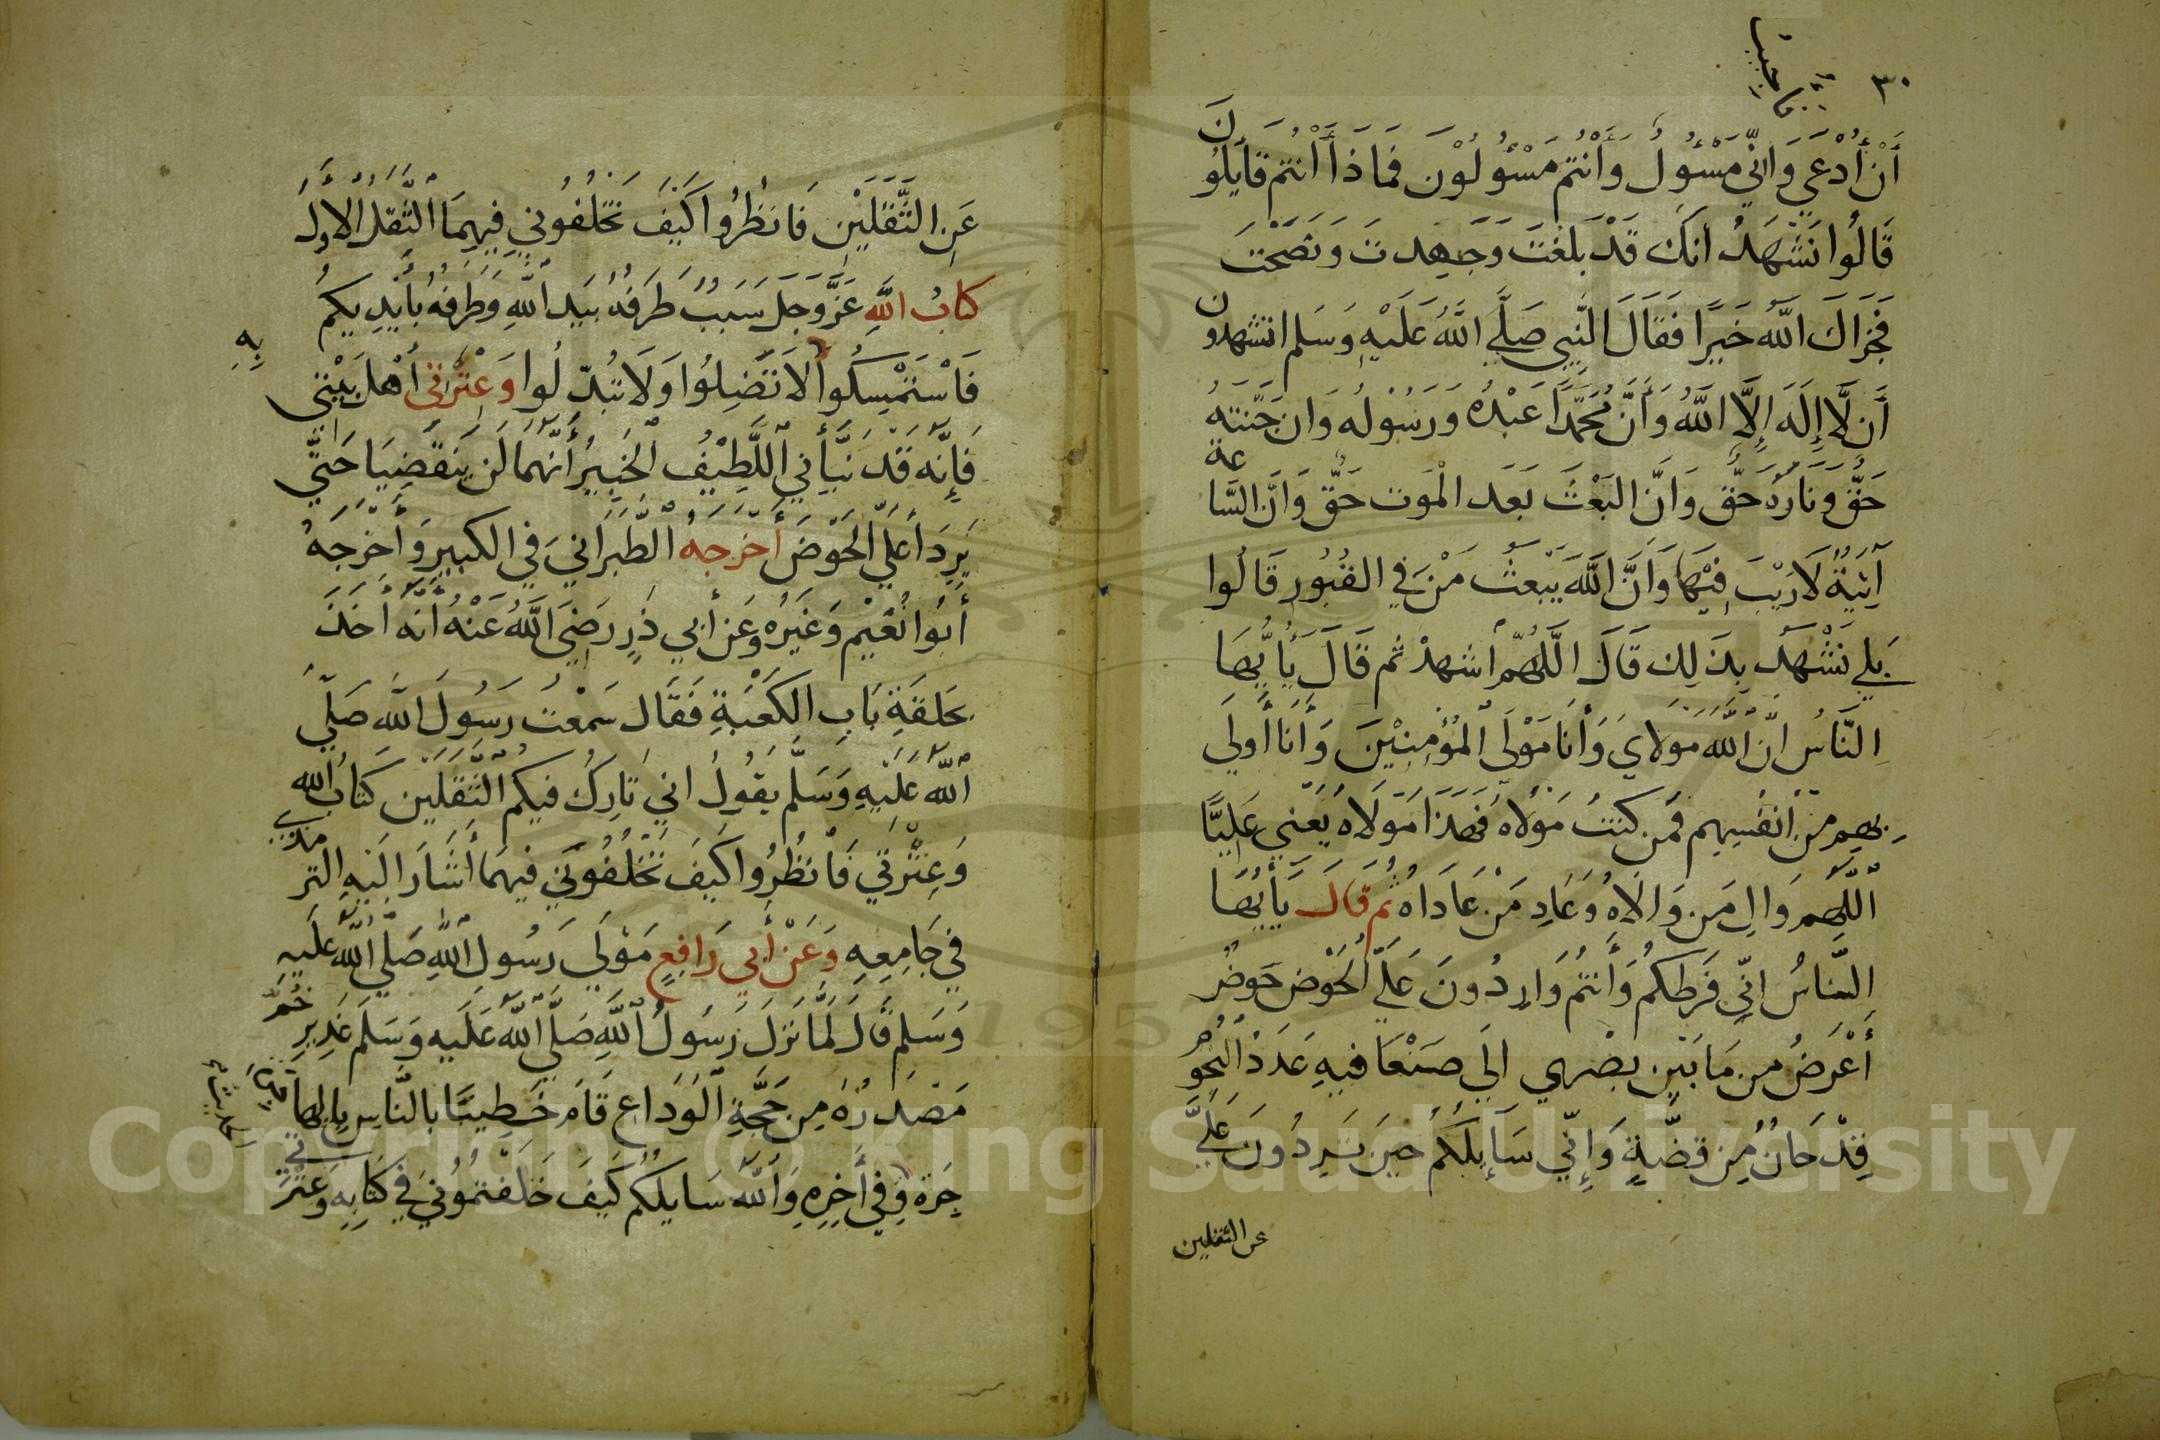 ٣٠
فأجيب
أَنْ أُدْعَي وَإِنِّي مَسْؤُلٌ وَأَنْتُم مَسْؤُلُوْنَ فَمَا ذَا أَنْتُم قَايِلُوْنَ
قَالُوا نَشْهَدُ أنَّكَ قَدْ بَلَّغْتَ وَجَهِدتَ وَنَصَحْتَ
فَجَزَاكَ اللَّهُ خَيرًا فَقَالَ النَّبِي صَلَّى اللَّهُ عَلَيْهِ وَسَلم اتشهدون
أَن لَّا إِلَهَ إِلَّا اللَّهُ وَأَنَّ مُحَمَّدًا عَبْدُه وَرَسُوْلُه وَان جَنَّتهُ
حَقٌّ وَنَارهُ حَقٌّ وَأنَّ البَعْثَ بَعَد الْمَوت حَقٌّ وَانَّ السَّاعة
آتِيَةٌ لَا رَيْبَ فِيْهَا وَأَنَّ اللَّهَ يَبْعَثُ مَنْ فِي القُبُورِ قَالُوا
بَلي نَشْهَدُ بِذَلِكَ قَالَ اللَّهُمَّ اشهدْ ثم قَالَ يَا أَيُّهَا
النَّاسُ انَّ اللَّهَ مَولَايَ وَأَنَا مَوْلَى الْمُؤْمِنِيْنَ وَأَنَا أَولَي
بِهِم مِنْ أَنْفُسِهِم فَمَن كُنتُ مَوْلَاهُ فَهَذَا مَولَاهُ يَعْنِي عَلِيًّا
اللَّهُمَّ وَالِ مَن وَالَاهُ وَعَادِ مَنْ عَادَاهُ ثُم قَالَ يَأَيُّهَا
النَّاسُ انِّي فَرَطكُم وَأَنتُم وَارِدُونَ عَلَيَّ الْحَوْض حَوضٌ
أَعْرَضُ مِن مَا بَيْن بصْرى الِي صَنْعَا فيهِ عَدَدُ النُجُوْمِ
قِدْحَانٌ مِن فِضَّةٍ وَإِنِّي سَآئِلُكُمْ حِينَ تَرِدُونَ عَلَيَّ
عن الثقلين
عَنِ الثَّقَلَيْنِ فَانظُرُوا كَيْفَ تَخْلُفُونِي فِيهِمَا الثَّقلُ الأوَّلُ
كتابُ اللَّهِ عَزَّ وَجَلَ سَبَبٌ طَرَفُهُ بيَد اللَّهِ وَطَرفُهُ بأَيْدِيكمُ
فَاسْتَمْسِكُوا بِهِ لَا تَضِلُوا وَلَا تُبدّلُوا وَعِتْرَتي أَهْلَ بَيْتِي
فَإِنَّه قَد نَبَّأَنِي اللَّطِيْفُ الْخَبِيرُ أَنَّهُمَا لَن يَنقَضِيَا حَتَّي
يَرِدَا عَلَيَّ الْحَوْضَ أَخرَجَه الطَّبَرَانِي فِي الكَبيرِ وَأَخرَجَهُ
أبُوا نُعَيْم وَغَيرُه وَعَن أَبي ذرٍ رَضِيَ اللَّهُ عَنْهُ أَنَّه أَخَذَ
بحَلقَةِ بَابِ الكَعْبَةِ فَقَال سَمْعتُ رَسُولَ اللَّه صَلَّي
اللَّهُ عَلَيْهِ وَسَلَّم يَقُولُ اني تَارِكُ فيكم الثَّقَلَيْن كتابُ الله
وَعِتْرَتي فَانظُرُوا كَيفَ تَخْلُفُوني فيهمَا أَشَارَ إِلَيْهِ الترمذي
في جَامِعِهِ وَعَنْ أَبي رَافِعٍ مَوْلَي رَسُولِ اللَّهِ صَلَّي اللَّهُ عَلَيهِ
وَسَلم قَالَ لَمَّا نَزَلَ رَسُولُ اللَّهِ صَلَّى اللَّهُ عَلَيهِ وَسَلَم غَدِيرِ خُمّ
مَصْدَرُهُ مِن حَجَّةِ الْوَدَاعِ قَامَ خَطِيبًا بالنَّاسِ بِالهاجرة
وَفي أَخِرِه وَاللَّهُ سَايلُكُم كَيفَ خَلَفْتمُوْنِي في كتَابِهِ وَعِتْرَتي
Copyright © King Saud University